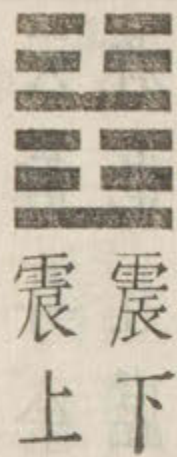 震下
震上